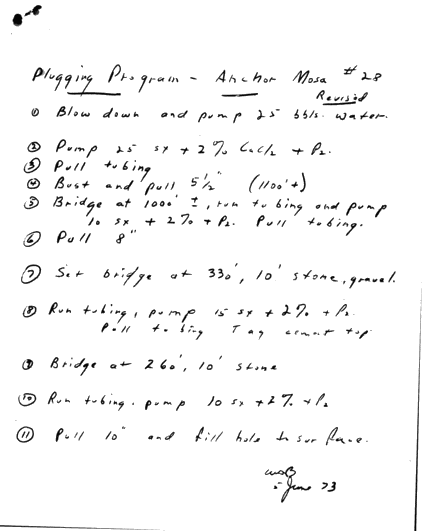 Plugging Program - Anchor Mosa #28
Revised
① Blow down and pump 25 bbls. water.
② Pump 25 sx + 2% CaCl2 + P2.
③ Pull tubing
④ Bust and pull 5 1/2" (1100'±)
⑤ Bridge at 1000' ±, run tubing and pump
10 sx + 2% + P2. Pull tubing.
⑥ Pull 8"
⑦ Set bridge at 330', 10' stone, gravel.
⑧ Run tubing, pump 15 sx + 2% + P2.
Pull tubing Tag cement top
⑨ Bridge at 260', 10' stone
⑩ Run tubing. pump 10 sx + 2% + P2
⑪ Pull 10" and fill hole to surface.
5 June 73